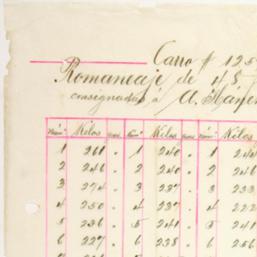 Carro # 125
Romaneaje de 45
consignadas á A. Hansen
Núm. Kilos Núm. Kilos Núm. Kilos
1 261 " 1 240 " 1 244
2 246 " 2 240 " 2 246
3 274 " 3 237 " 3 233
4 250 " 4 237 " 4 222
5 236 " 5 241 " 5 241
6 227 " 6 238 " 6 256